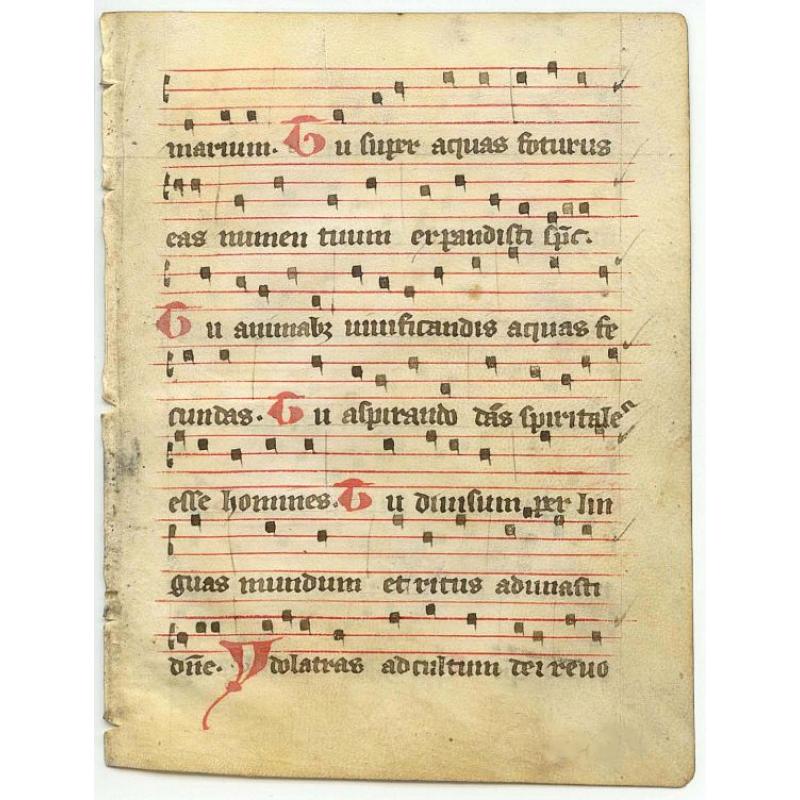 marium. Tu super aquas foturus
eas numen tuum expandisti sp̄c.
Tu animabꝫ uiuificandis aquas fe
cundas. Tu aspirando das spiritales
esse homines. Tu diuisum per lin
guas mundum et ritus adunasti
dn̄e. Ydolatras ad cultum dei reuo